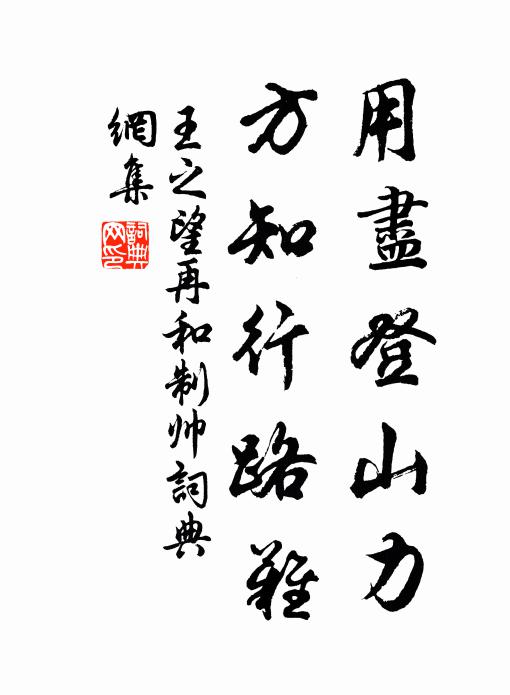 用盡登山力
方知行路難
王之望再和制帅詞典
網集
詞典網印